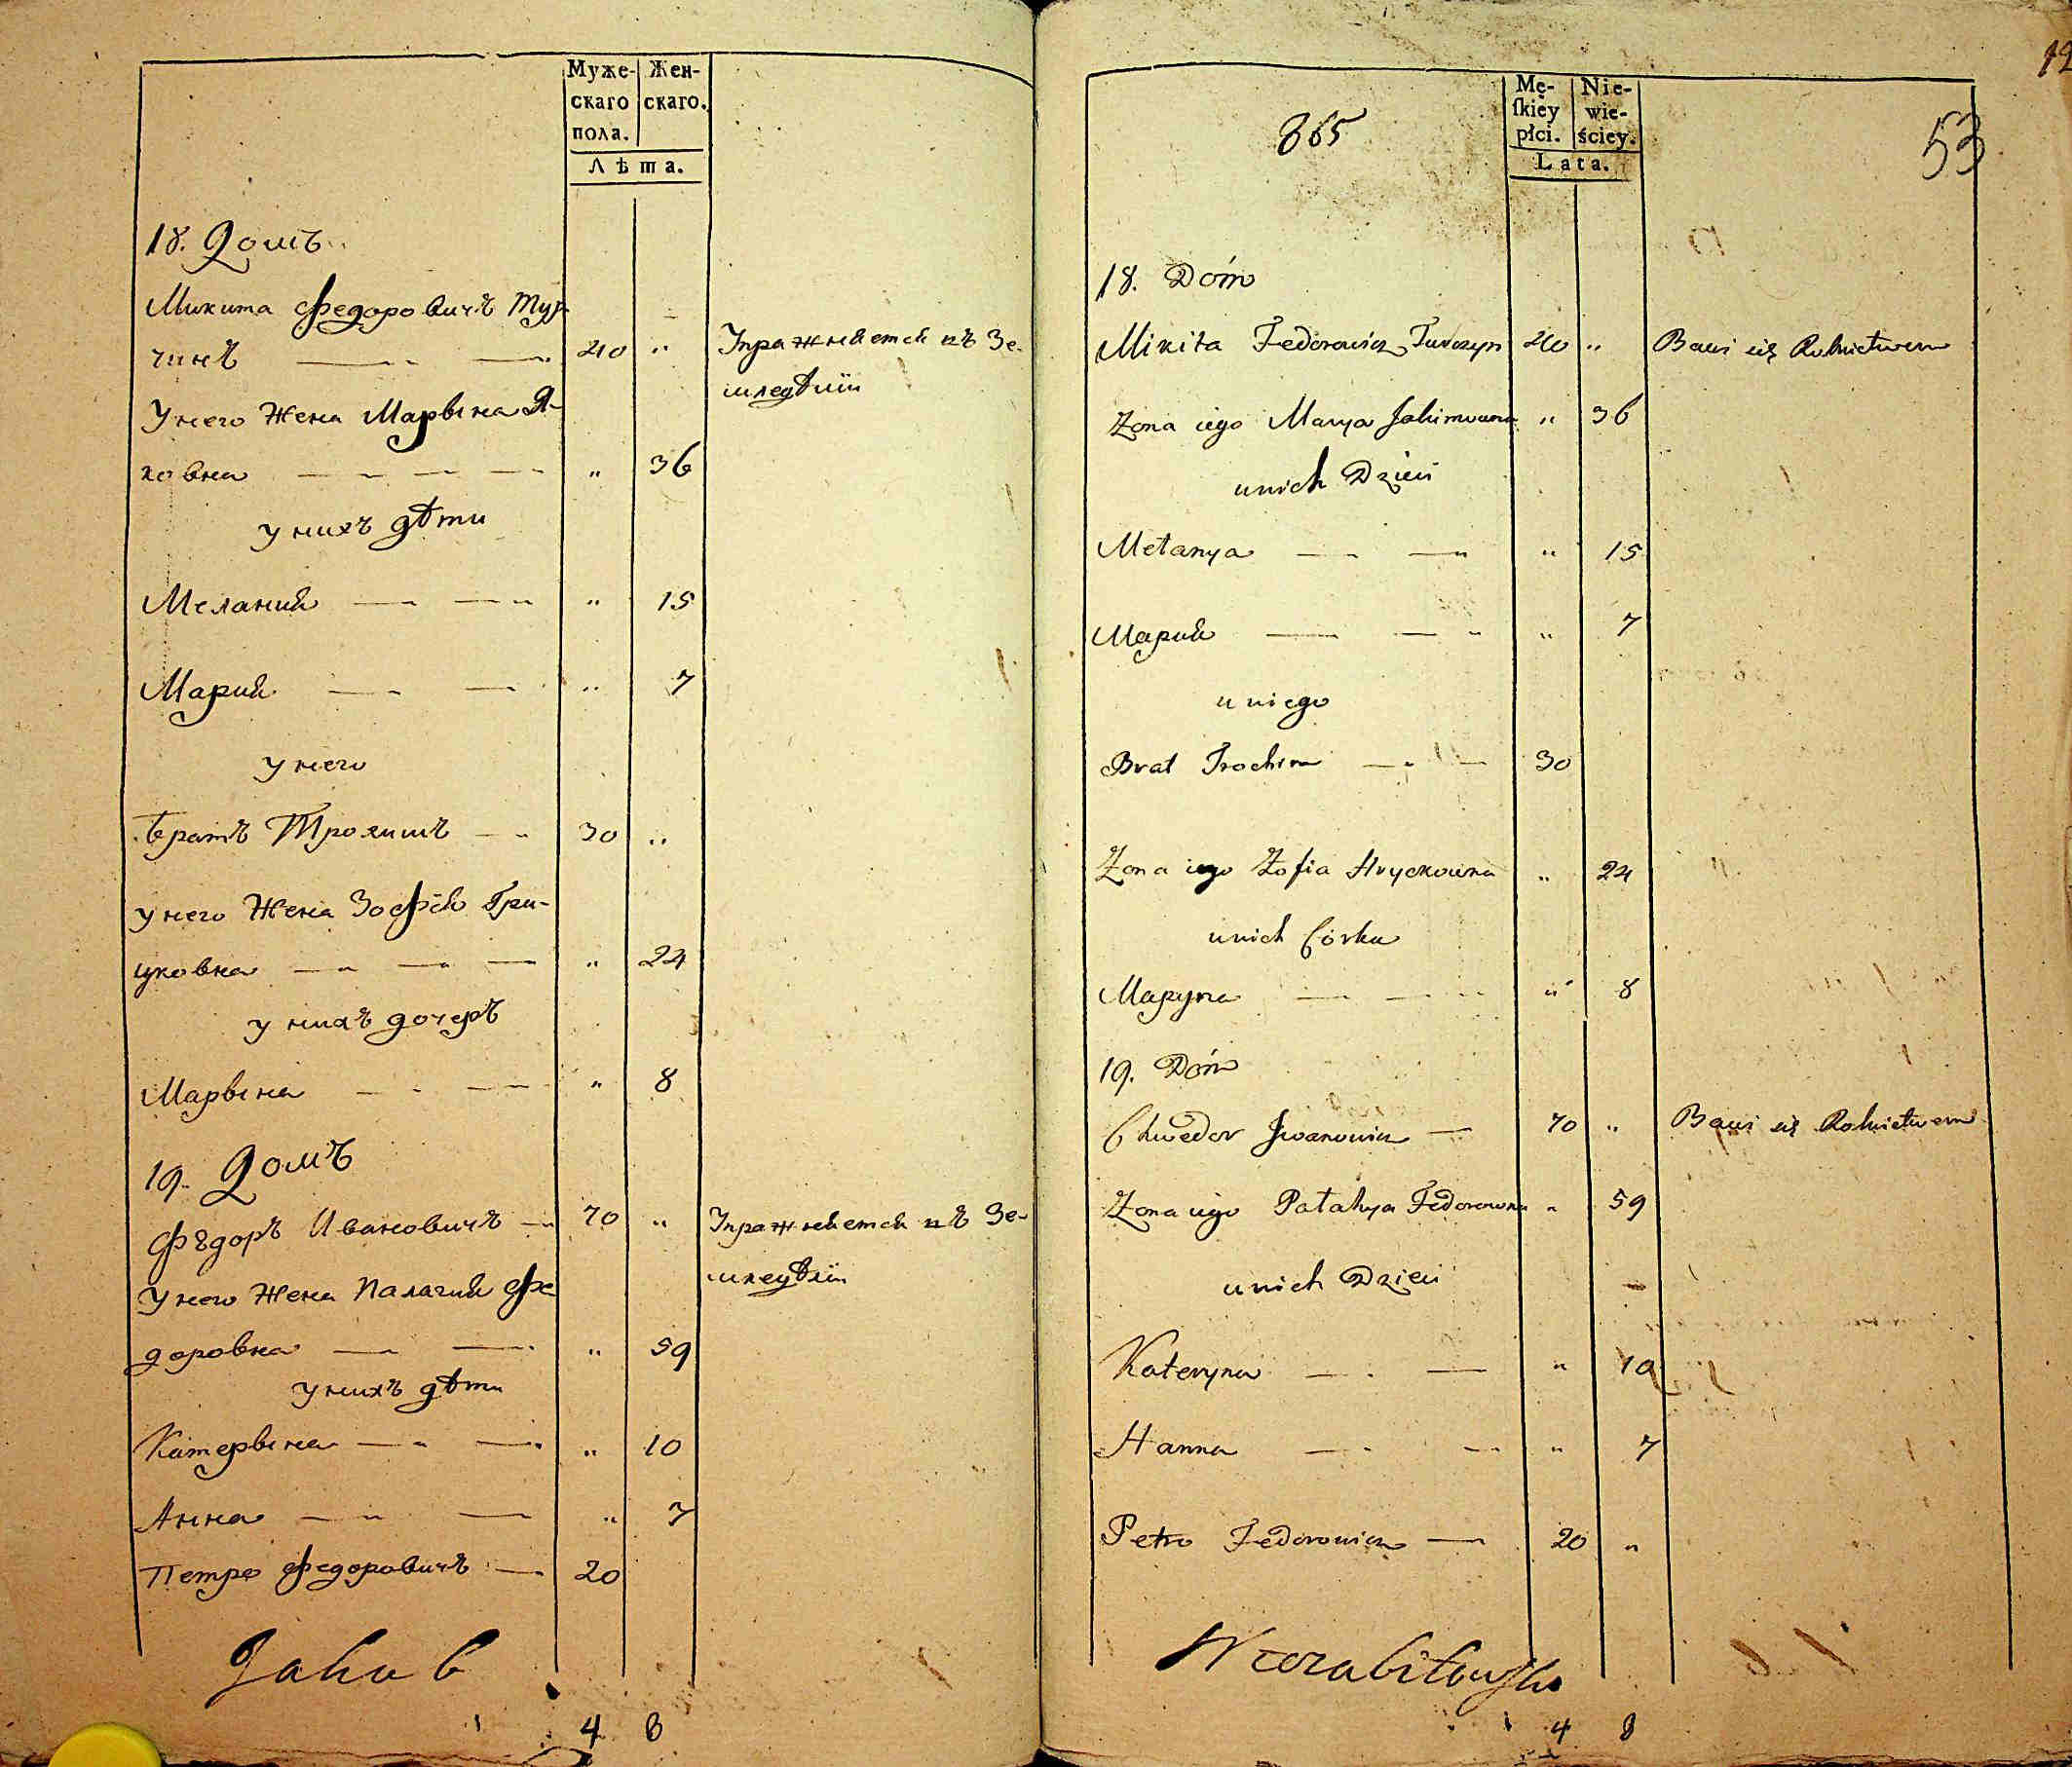 Муже-
скаго
пола.
Жен-
скаго.
Лѣта.
18. Домъ
Микита Федоровичъ Тур-
чинъ 40 „ Упражняется въ зе-
мледѣлїи
У него Жена Марына Я-
ковна „ 36
у нихъ дѣти
Мелания „ 15
Мария „ 7
у него
братъ Трохимъ 30 „
у него Жена Зофѣя Гри-
цковна „ 24
у нихъ дочеръ
Марына „ 8
19. Домъ
Фѣдоръ Ивановичъ 70 „ Упражняется въ зе-
мледѣлїи
У него Жена Палагия Фе-
доровна „ 59
у нихъ дѣти
Катерына „ 10
Анна „ 7
Петро Федоровичъ 20
Jakub
4 8
865
Mę-
ſkiey
płci.
Nie-
wie-
ściey.
Lata.
53
18. Dóm
Mikita Fedorowicz Turczyn 40 „ Bawi się Rolnictwem
Zona iego Marya Jakimowna „ 36
unich Dzieci
Melanya „ 15
Мария „ 7
u niego
Brat Trochim 30
Zona iego Zofia Hryckowna „ 24
unich Córka
Маруna „ 8
19. Dóm
Chwedor Iwanowicz 70 „ Bawi się Rolnictwem
Zona iego Palahya Fedorowna „ 59
unich Dzieci
Kateryna „ 10
Hanna „ 7
Petro Fedorowicz 20 „
4 8